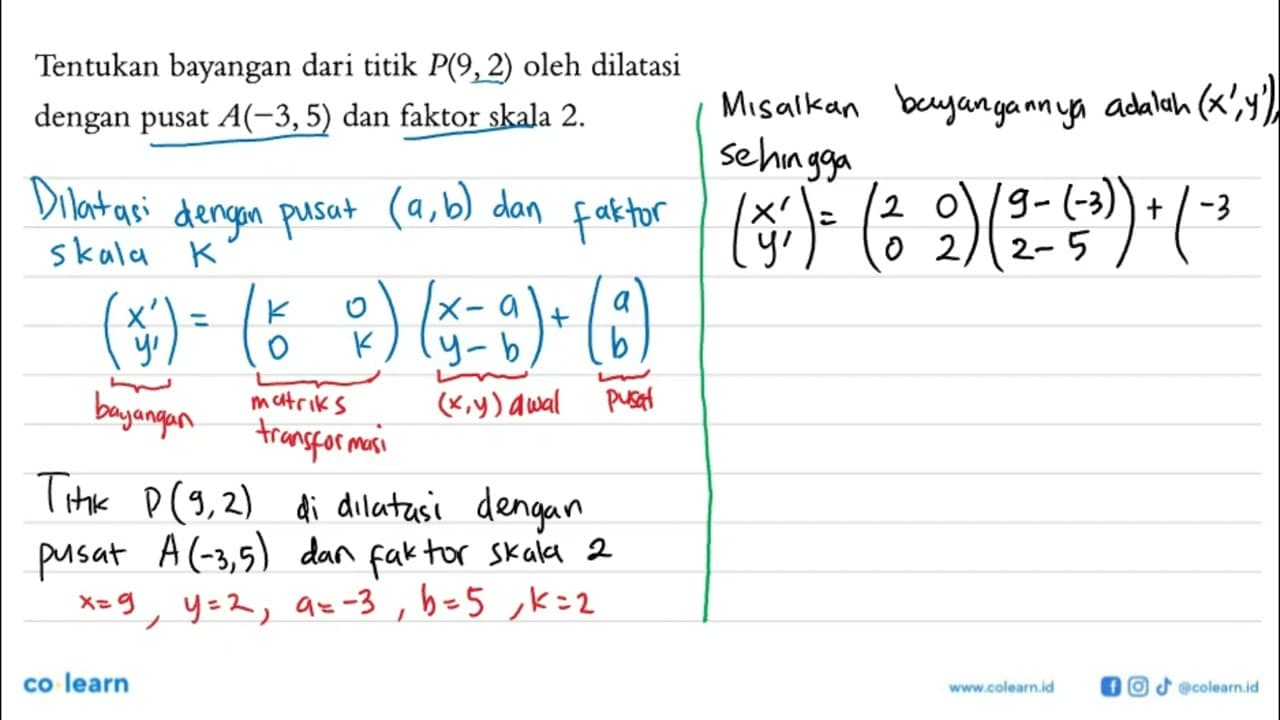 Tentukan bayangan dari titik P(9, 2) oleh dilatasi
dengan pusat A(−3, 5) dan faktor skala 2.
Dilatasi dengan pusat (a,b) dan faktor
skala K
(x' y') = (k 0 0 k) (x-a y-b) + (a b)
bayangan matriks transformasi (x,y) awal pusat
Titik P(9,2) di dilatasi dengan
pusat A(-3,5) dan faktor skala 2
x=9, y=2, a=-3, b=5, k=2
Misalkan bayangannya adalah (x',y'),
sehingga
(x' y') = (2 0 0 2) (9-(-3) 2-5) + (-3
co learn
www.colearn.id
@colearn.id